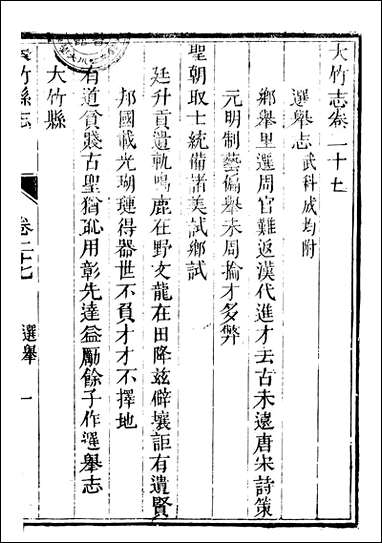 大竹志卷二十七
選舉志 武科成均附
鄉舉里選周官難返漢代進才去古未遠唐宋詩策
元明制藝偏舉未周掄才多弊
聖朝取士統備諸美試鄉試
廷升貢遺軌鳴鹿在野文龍在田降茲僻壤詎有遺賢
邦國載光瑚璉得器世不負才才不擇地
有道貧賤古聖猶恥用彰先達益勵餘子作選舉志
大竹縣
竹縣志
卷二十七
選舉
一